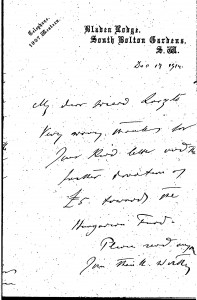 Telephone:
1097 Western.
Bladen Lodge,
South Bolton Gardens,
S.W.
Dec 19 1914.
My dear
Very many thanks for
your kind letter and the
further donation of
£5 towards the
Hungarian Fund.
Please
Yours